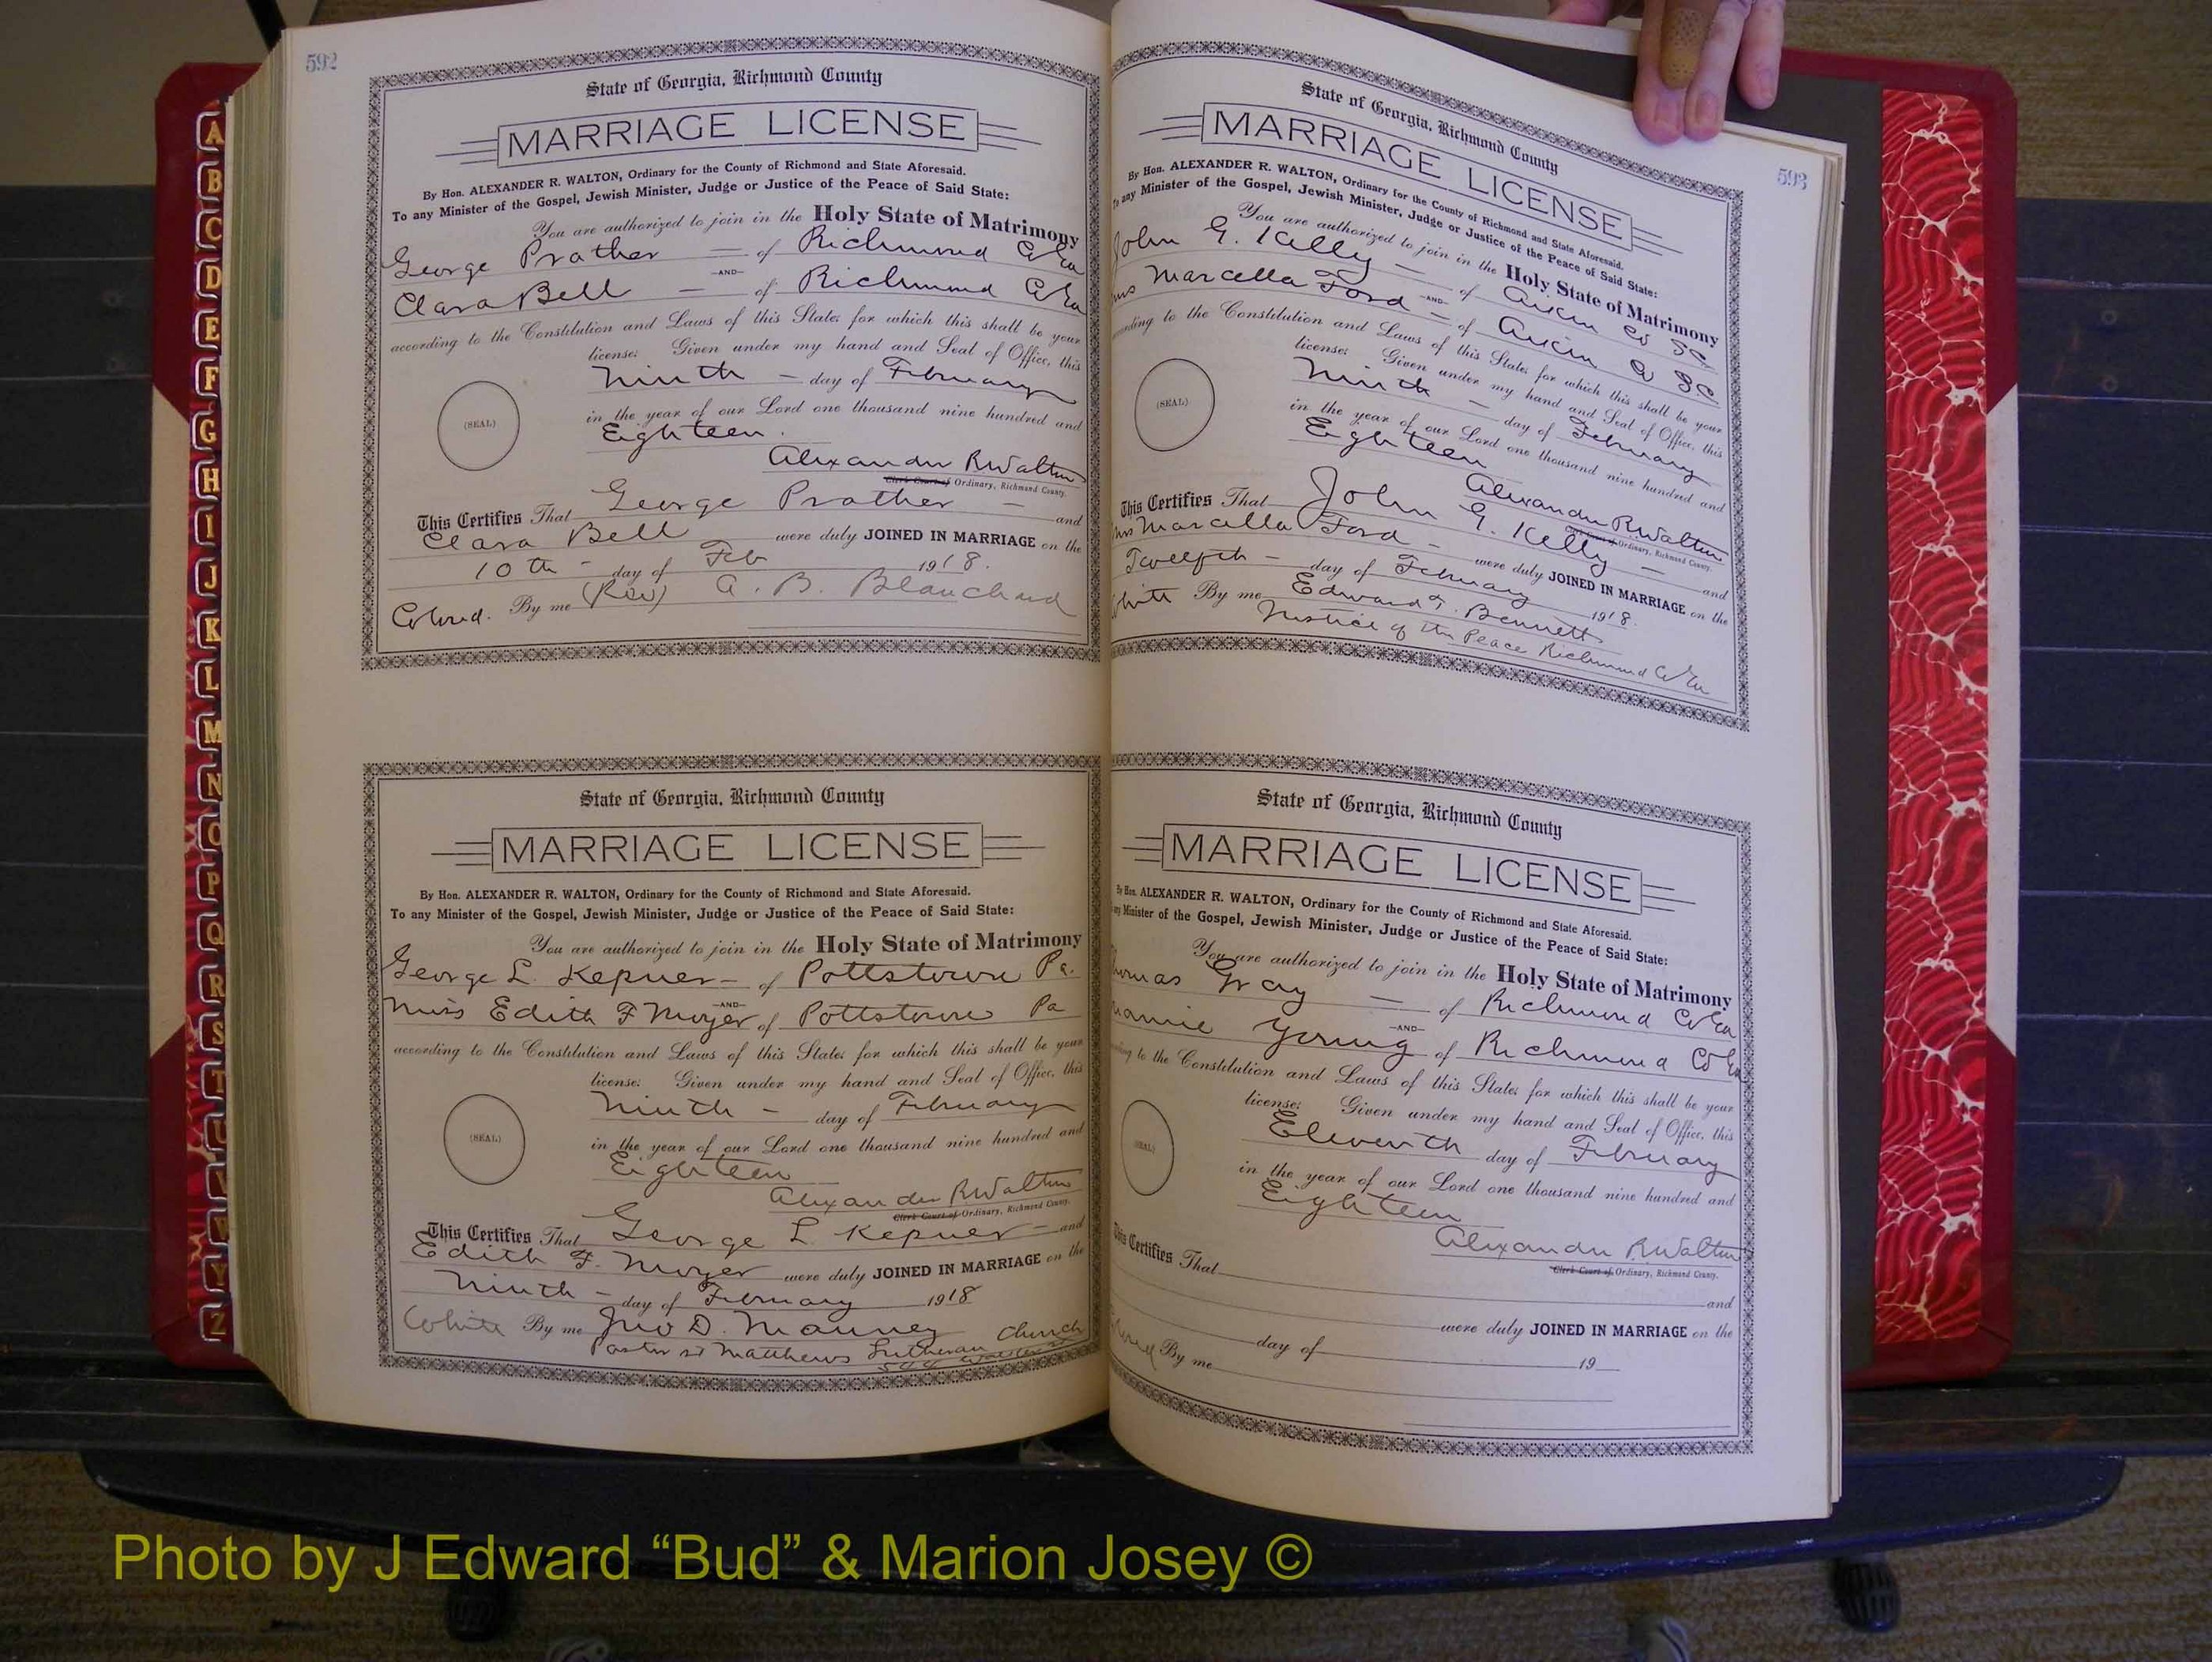 592
State of Georgia, Richmond County
MARRIAGE LICENSE
By Hon. ALEXANDER R. WALTON, Ordinary for the County of Richmond and State Aforesaid.
To any Minister of the Gospel, Jewish Minister, Judge or Justice of the Peace of Said State:
You are authorized to join in the Holy State of Matrimony
George Prather — of Richmond Co Ga
—AND—
Clara Bell — of Richmond Co Ga
according to the Constitution and Laws of this State; for which this shall be your
license: Given under my hand and Seal of Office, this
Ninth — day of February
(SEAL)
in the year of our Lord one thousand nine hundred and
Eighteen.
Alexander R Walton
Clerk Court of Ordinary, Richmond County.
This Certifies That George Prather — and
Clara Bell were duly JOINED IN MARRIAGE on the
10th — day of Feb 1918.
Colored. By me (Rev) A. B. Blanchard
State of Georgia, Richmond County
MARRIAGE LICENSE
By Hon. ALEXANDER R. WALTON, Ordinary for the County of Richmond and State Aforesaid.
To any Minister of the Gospel, Jewish Minister, Judge or Justice of the Peace of Said State:
You are authorized to join in the Holy State of Matrimony
George L. Kepner — of Pottstown Pa.
—AND—
Miss Edith F Moyer of Pottstown Pa
according to the Constitution and Laws of this State; for which this shall be your
license: Given under my hand and Seal of Office, this
Ninth — day of February
(SEAL)
in the year of our Lord one thousand nine hundred and
Eighteen
Alexander R Walton
Clerk Court of Ordinary, Richmond County.
This Certifies That George L. Kepner — and
Edith F. Moyer were duly JOINED IN MARRIAGE on the
Ninth — day of February 1918
White By me Jno D. Mauney
Pastor St Matthews Lutheran Church
593
State of Georgia, Richmond County
MARRIAGE LICENSE
By Hon. ALEXANDER R. WALTON, Ordinary for the County of Richmond and State Aforesaid.
To any Minister of the Gospel, Jewish Minister, Judge or Justice of the Peace of Said State:
You are authorized to join in the Holy State of Matrimony
John G. Kelly — of Aiken Co SC
—AND—
Marcella Ford — of Aiken Co SC
according to the Constitution and Laws of this State; for which this shall be your
license: Given under my hand and Seal of Office, this
Ninth — day of February
(SEAL)
in the year of our Lord one thousand nine hundred and
Eighteen
Alexander R. Walton
Court of Ordinary, Richmond County.
This Certifies That John G. Kelly — and
Marcella Ford — were duly JOINED IN MARRIAGE on the
Twelfth — day of February 1918.
White By me Edward T. Bennett
Justice of the Peace Richmond Co Ga
State of Georgia, Richmond County
MARRIAGE LICENSE
By Hon. ALEXANDER R. WALTON, Ordinary for the County of Richmond and State Aforesaid.
any Minister of the Gospel, Jewish Minister, Judge or Justice of the Peace of Said State:
You are authorized to join in the Holy State of Matrimony
Thomas Gray — of Richmond Co Ga
—AND—
Young of Richmond Co Ga
according to the Constitution and Laws of this State; for which this shall be your
license: Given under my hand and Seal of Office, this
Eleventh day of February
(SEAL)
in the year of our Lord one thousand nine hundred and
Eighteen
Alexander R. Walton
Clerk Court of Ordinary, Richmond County.
This Certifies That and
were duly JOINED IN MARRIAGE on the
day of 19
By me
A
B
C
D
E
F
G
H
I
J
K
L
M
N
O
P
Q
R
S
T
U
V
W
Y
Z
Photo by J Edward “Bud” & Marion Josey ©